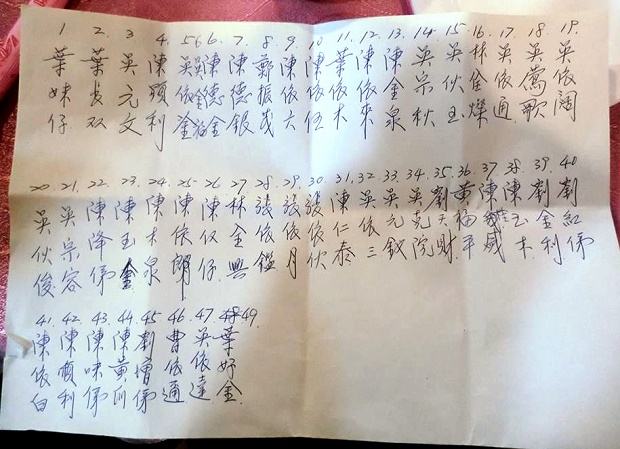 1 葉妹仔
2. 葉长双
3 吴元文
4. 陳利
5 吴依金
6. 陳德金
7. 陳德銀
8 鄭振茂
9. 陳依六
10 陳依
11. 葉依木
12. 陳依來
13. 陳金泉
14. 吴宗秋
15. 吴伙玉
16. 林金燦
17. 吴依通
18. 吴鶯歌
19. 吴依阔
20 吴伙俊
21. 吴宗容
22. 陳降俤
23. 陳玉金
24. 陳木泉
25 陳朗
26 陳仅仔
27 林金興
28 張依鑑
29. 張依月
30 張依伙
31. 陳仁泰
32. 吴依三
33. 吴元釵
34. 吴克院
35. 劉天財
36. 黄福平
37. 陳威
38. 陳玉木
39. 劉金利
40 劉紅俤
41. 陳依白
42. 陳順利
43. 陳味俤
44. 陳黄訓
45 劉增俤
46 曹依通
47. 吴依達
48 葉妤金
49.